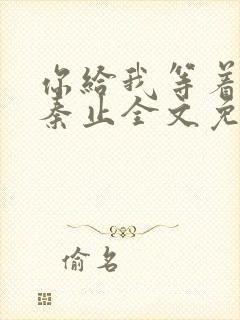 你給我等着
秦止全文免
偷名